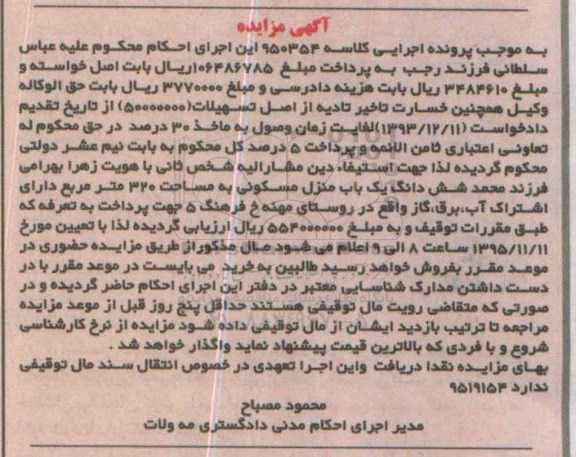 آگهی مزایده
به موجب پرونده اجرایی کلاسه ۹۵۰۳۵۴ این اجرای احکام محکوم علیه عباس
سلطانی فرزند رجب به پرداخت مبلغ ۱۰۶۴۸۶۷۸۵ریال بابت اصل خواسته و
مبلغ ۳۴۸۴۶۱۰ ریال بابت هزینه دادرسی و مبلغ ۳۷۷۰۰۰۰ ریال بابت حق الوکاله
وکیل همچنین خسارت تاخیر تادیه از اصل تسهیلات(۵۰۰۰۰۰۰۰) از تاریخ تقدیم
دادخواست (۱۳۹۳/۱۲/۱۱)لغایت زمان وصول به ماخذ ۳۰ درصد در حق محکوم له
تعاونی اعتباری ثامن الائمه و پرداخت ۵ درصد کل محکوم به بابت نیم عشر دولتی
محکوم گردیده لذا جهت استیفاء دین مشارالیه شخص ثانی با هویت زهرا بهرامی
فرزند محمد شش دانگ یک باب منزل مسکونی به مساحت ۳۲۰ متر مربع دارای
اشتراک آب،برق،گاز واقع در روستای مهنه خ فرهنگ ۵ جهت پرداخت به تعرفه که
طبق مقررات توقیف و به مبلغ ۵۵۴۰۰۰۰۰۰ ریال ارزیابی گردیده لذا با تعیین مورخ
۱۳۹۵/۱۱/۱۱ ساعت ۸ الی ۹ اعلام می شود مال مذکوراز طریق مزایده حضوری در
موعد مقرر بفروش خواهد رسید طالبین به خرید می بایست در موعد مقرر با در
دست داشتن مدارک شناسایی معتبر در دفتر این اجرای احکام حاضر گردیده و در
صورتی که متقاضی رویت مال توقیفی هستند حداقل پنج روز قبل از موعد مزایده
مراجعه تا ترتیب بازدید ایشان از مال توقیفی داده شود مزایده از نرخ کارشناسی
شروع و با فردی که بالاترین قیمت پیشنهاد نماید واگذار خواهد شد .
بهای مزایده نقدا دریافت واین اجرا تعهدی در خصوص انتقال سند مال توقیفی
ندارد ۹۵۱۹۱۵۴
محمود مصباح
مدیر اجرای احکام مدنی دادگستری مه ولات